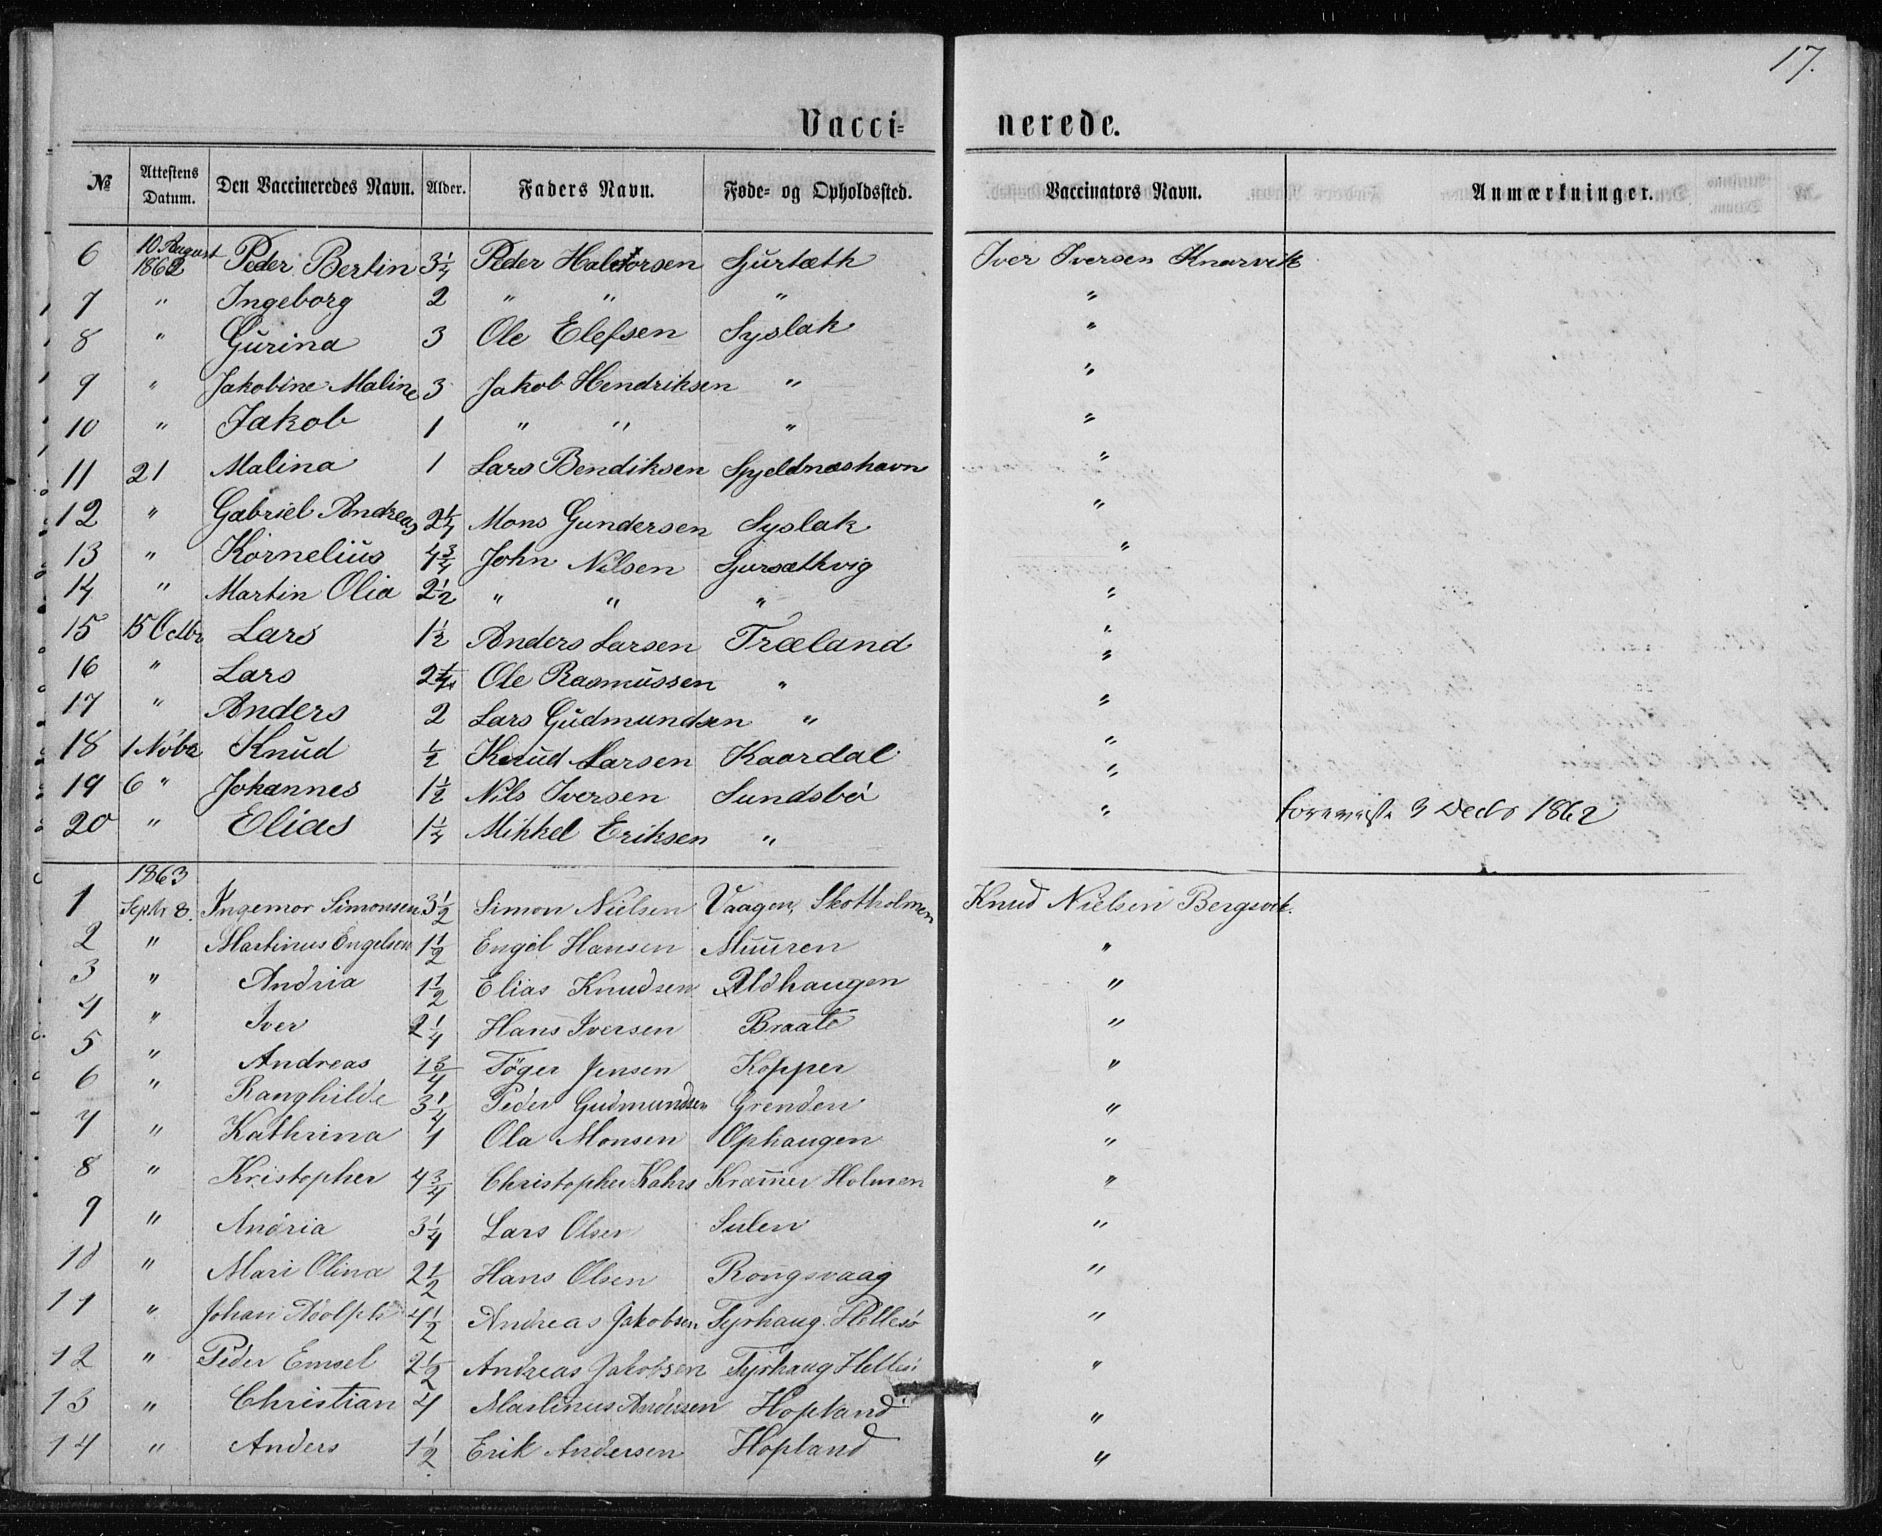 17.
Vacci= nerede.
№ | Attestens Datum. | Den Vaccineredes Navn. | Alder. | Faders Navn. | Føde- og Opholdssted. | Vaccinators Navn. | Anmærkninger.
6 | 10 August 1862 | Peder Bertin | 3 1/4 | Peder Halvorsen | Sjurtæth | Iver Iversen Knarvik
7 | " | Ingeborg | 2 | " " | " | "
8 | " | Gurina | 3 | Ole Elefsen | Syslak | "
9 | " | Jakobine Maline | 3 | Jakob Hendriksen | " | "
10 | " | Jakob | 1 | " " | " | "
11 | 21 | Malina | 1 | Lars Bendiksen | Spjeldnæshavn | "
12 | " | Gabriel Andreas | 2 1/4 | Mons Gundersen | Syslak | "
13 | " | Kornelius | 4 3/4 | John Nilsen | Sjursæthvig | "
14 | " | Martin Olia | 2 1/2 | " " | " | "
15 | 15 Octbr | Lars | 1 1/2 | Anders Larsen | Træland | "
16 | " | Lars | 2 1/4 | Ole Rasmussen | " | "
17 | " | Anders | 2 | Lars Gudmundsen | " | "
18 | 1 Nóbr | Knud | 1/2 | Knud Larsen | Kaardal | "
19 | 6 " | Johannes | 1 1/2 | Nils Iversen | Sundsbö | "
20 | " | Elias | 1 1/4 | Mikkel Eriksen | " | " | foreviist 3 Decbr 1862
1863
1 | Septbr 8. | Ingemor Simonsen | 3 1/2 | Simon Nielsen | Vaagen, Skotholmen | Knud Nielsen Bergsvik.
2 | " | Martinus Engelsen | 1 1/2 | Engel Hansen | Muuren | "
3 | " | Andria | 1 1/2 | Elias Knudsen | Uldhaugen | "
4 | " | Iver | 2 1/4 | Hans Iversen | Braate | "
5 | " | Andreas | 1 3/4 | Töger Jensen | Kopper | "
6 | " | Ranghilde | 3 1/4 | Peder Gudmundsen | Grenden | "
7 | " | Kathrina | 1 | Ola Monsen | Ophaugen | "
8 | " | Kristopher | 4 3/4 | Christopher Kahrs | Kræmer Holmen | "
9 | " | Andria | 3 1/4 | Lars Olsen | Sulen | "
10 | " | Mari Olina | 2 1/2 | Hans Olsen | Rongsvaag | "
11 | " | Johan Adolph | 4 1/2 | Andreas Jakobsen | Tyrhaug. Hellesö | "
12 | " | Peder Emsel | 2 1/2 | Andreas Jakobsen | Tyrhaug Hellesö | "
13 | " | Christian | 4 | Martinus Andersen | Hopland | "
14 | " | Anders | 1 1/2 | Erik Andersen | Hopland | "